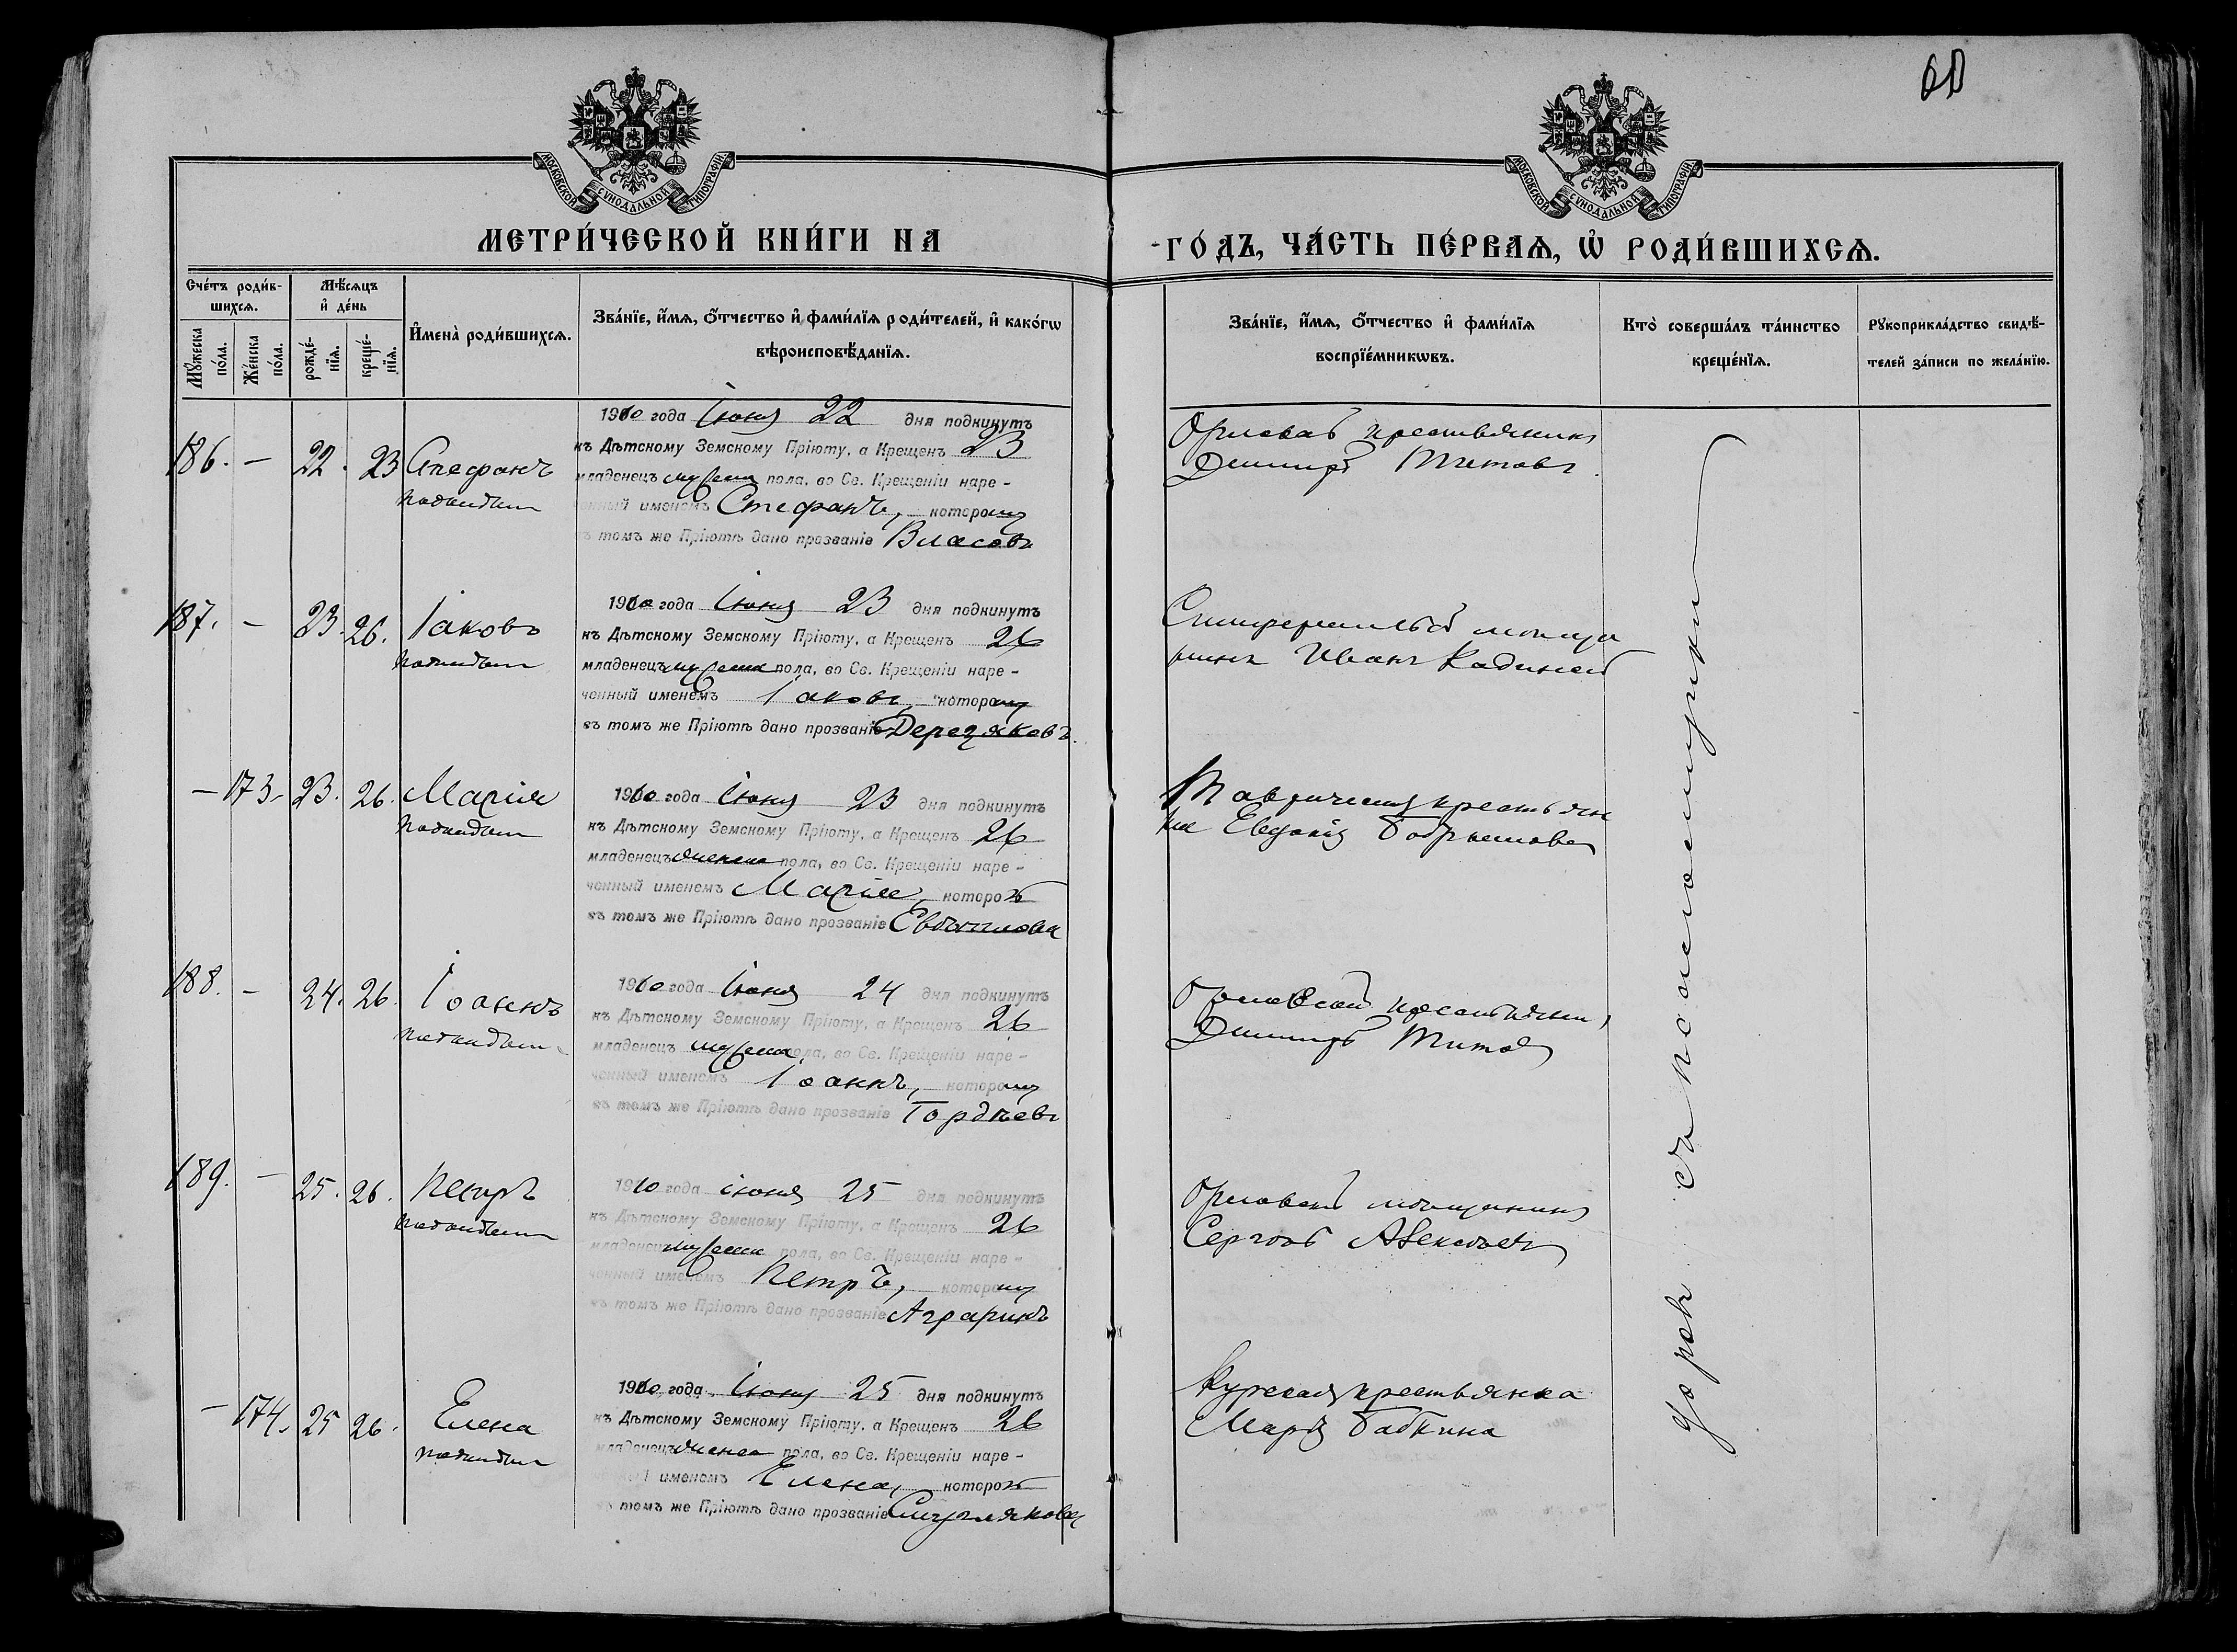 60
МОСКОВСКОЙ СѴНОДАЛЬНОЙ ТИПОГРАФІИ
МОСКОВСКОЙ СѴНОДАЛЬНОЙ ТИПОГРАФІИ
МЕТРИ́ЧЕСКОЙ КНИ́ГИ НА
-ГО́ДЪ, ЧА́СТЬ ПЕ́РВАѦ, Ѡ҆ РОДИ́ВШИХСѦ.
Сче́тъ роди́в-
шихсѧ.
Мꙋ́жеска по́ла.
Же́нска по́ла.
Мѣ́сѧцъ
и҆ де́нь
рожде́-
нїѧ.
креще́-
нїѧ.
И҆мена̀ роди́вшихсѧ.
Зва́нїе, и҆́мѧ, ѻ҆́тчество и҆ фами́лїѧ роди́телей, и҆ како́гѡ
вѣроисповѣ́данїѧ.
Зва́нїе, и҆́мѧ, ѻ҆́тчество и҆ фами́лїѧ
воспрїе́мникѡвъ.
Кто̀ соверша́лъ та́инство
креще́нїѧ.
Рꙋкоприкла́дство свидѣ́-
телей за́писи по жела́нїю.
186. — 22. 23 Стефанъ
подкидыш
1910 года Іюня 22 дня подкинутъ
къ Дѣтскому Земскому Пріюту, а Крещенъ 23
младенецъ мужеска пола, во Св. Крещеніи наре-
ченный именемъ Стефанъ, которому
въ томъ же Пріютѣ дано прозваніе Власовъ
Орловск крестьянинъ
Димитр Титовъ
187. — 23. 26. Іаковъ
подкидыш
1910 года Іюня 23 дня подкинутъ
къ Дѣтскому Земскому Пріюту, а Крещенъ 26
младенецъ мужеска пола, во Св. Крещеніи наре-
ченный именемъ Іаковъ, которому
въ томъ же Пріютѣ дано прозваніе
Иванъ
— 173. 23. 26. Марія
подкидыш
1910 года Іюня 23 дня подкинутъ
къ Дѣтскому Земскому Пріюту, а Крещенъ 26
младенецъ женска пола, во Св. Крещеніи наре-
ченный именемъ Марія, которой
въ томъ же Пріютѣ дано прозваніе
Таврическая крестьян
ка Евдокія
188. — 24. 26. Іоаннъ
подкидыш
1910 года Іюня 24 дня подкинутъ
къ Дѣтскому Земскому Пріюту, а Крещенъ 26
младенецъ мужеска пола, во Св. Крещеніи наре-
ченный именемъ Іоаннъ, которому
въ томъ же Пріютѣ дано прозваніе Гордѣевъ
Орловской крестьянин
Димитр Титов
189. — 25. 26. Петръ
подкидыш
1910 года іюня 25 дня подкинутъ
къ Дѣтскому Земскому Пріюту, а Крещенъ 26
младенецъ мужеска пола, во Св. Крещеніи наре-
ченный именемъ Петръ, которому
въ томъ же Пріютѣ дано прозваніе Аграринъ
Орловскій мѣщанинъ
Сергѣй Алексѣевъ
— 174. 25 26. Елена
подкидыш
1910 года Іюня 25 дня подкинутъ
къ Дѣтскому Земскому Пріюту, а Крещенъ 26
младенецъ женска пола, во Св. Крещеніи наре-
ченный именемъ Елена, которой
въ томъ же Пріютѣ дано прозваніе Смуглякова
Курская крестьянка
Марія Бабкина